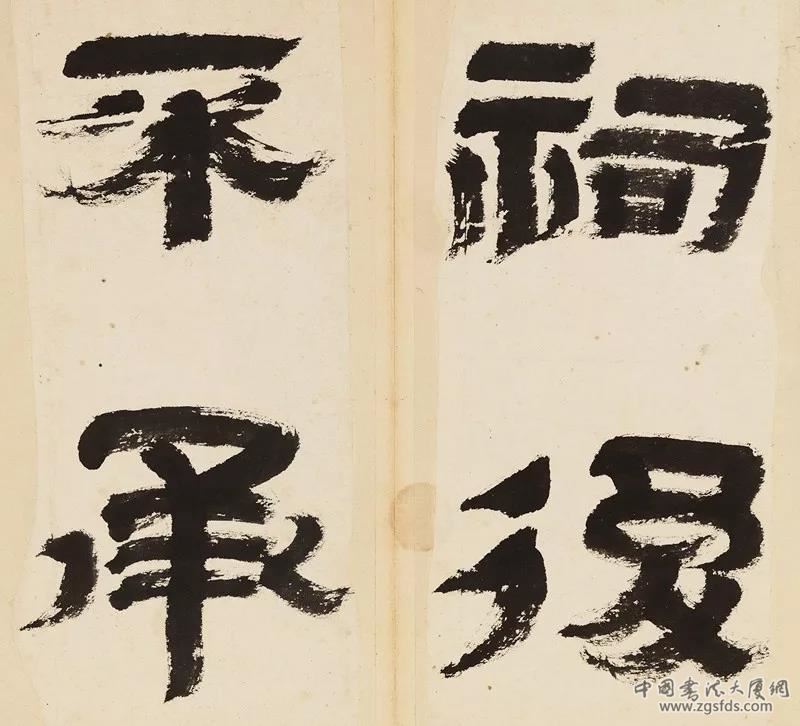 祠後
不承
中國書法大廈網
www.zgsfds.com